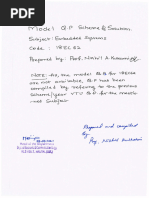 Model Q.P Scheme & Solution.
Subject: Embedded Systems
Code : 18EC62
Prepared by: Prof. Nikhil A
Note:- As, the model QB for
are not available, QB has been
compiled by refering to the previous
scheme/year VTU QP for the match-
-net Subject
Prepared and compiled
by
Prof. Nikhil